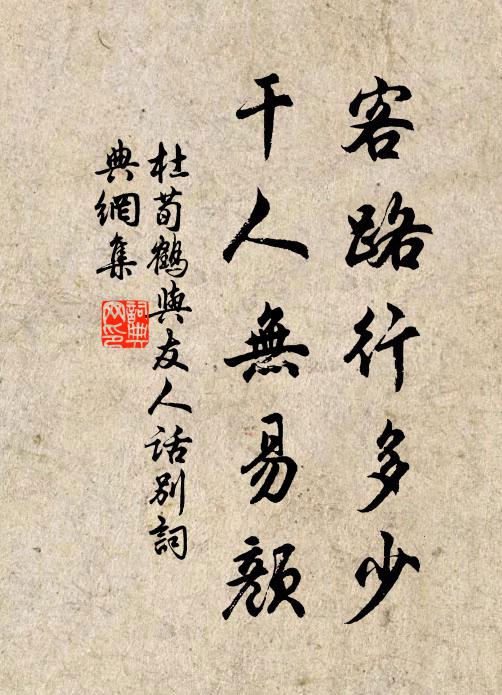 客路行多少
干人無易顔
杜荀鶴與友人话别詞
典網集
詞典
网印